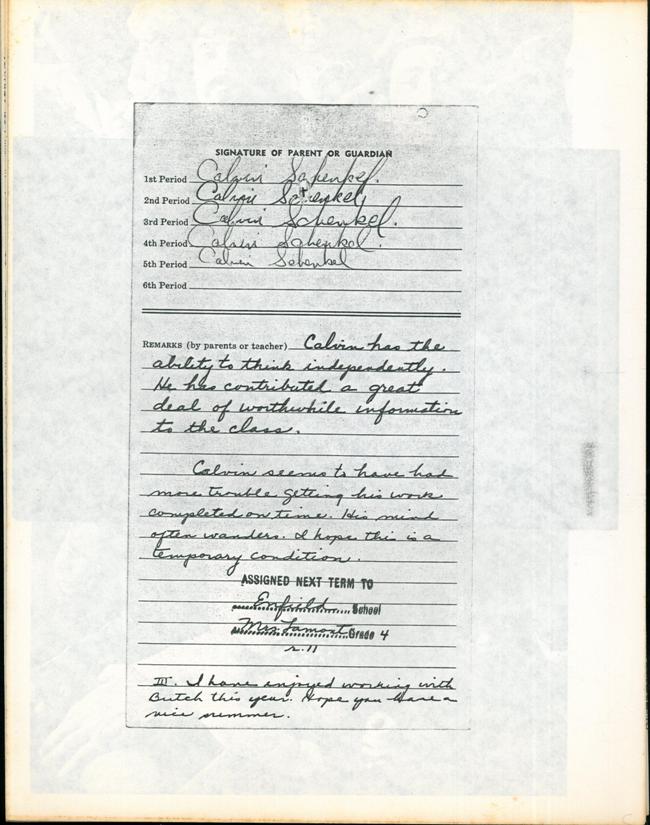 SIGNATURE OF PARENT OR GUARDIAN
1st Period Calvin Schenkel.
2nd Period Calvin Schenkel
3rd Period Calvin Schenkel.
4th Period Calvin Schenkel.
5th Period Calvin Schenkel
6th Period
REMARKS (by parents or teacher) Calvin has the
ability to think independently.
He has contributed a great
deal of worthwhile information
to the class.
Calvin seems to have had
more trouble getting his work
completed on time. His mind
often wanders. I hope this is a
temporary condition.
ASSIGNED NEXT TERM TO
Enfield School
Mrs. Lamont Grade 4
r. 11
III. I have enjoyed working with
Butch this year. Hope you have a
nice summer.